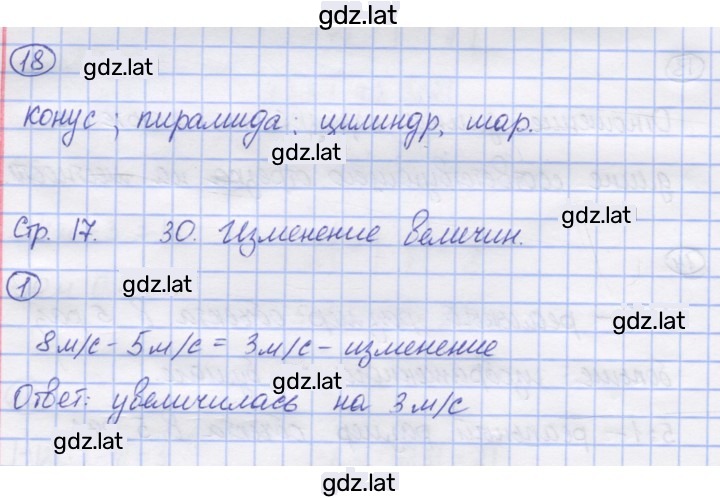 gdz.lat
18
gdz.lat
конус; пирамида; цилиндр, шар.
gdz.lat
Стр. 17. 30. Изменение величин.
gdz.lat
1
gdz.lat
gdz.lat
8м/с - 5м/с = 3м/с - изменение
gdz.lat
Ответ: увеличилась на 3м/с
gdz.lat
gdz.lat